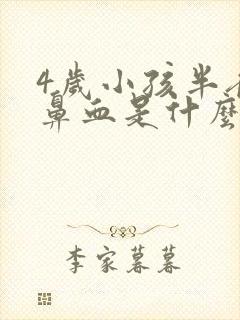 4歲小孩半
鼻血是什麼
李家暮暮